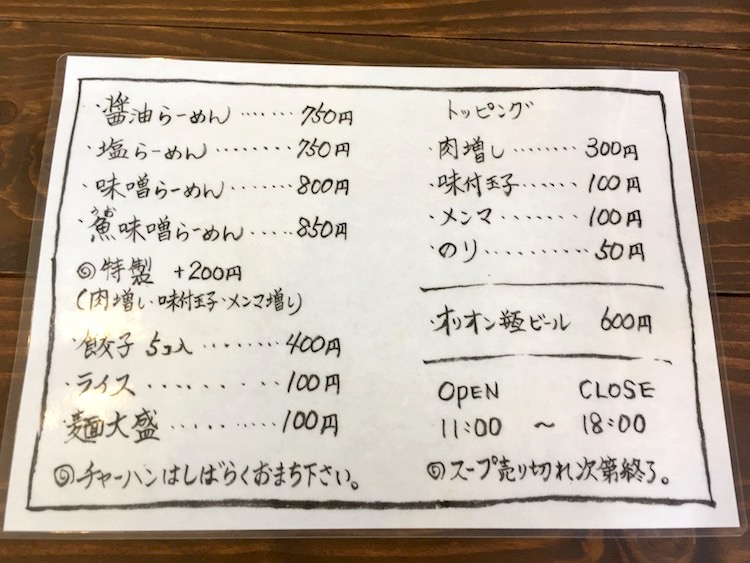 ・醤油らーめん……750円
・塩らーめん………750円
・味噌らーめん……800円
うお
・魚味噌らーめん……850円
◎特製 +200円
(肉増し・味付玉子・メンマ増し)
・餃子 5コ入………400円
・ライス………100円
麺大盛………100円
◎チャーハンはしばらくおまち下さい。
トッピング
・肉増し………300円
・味付玉子……100円
・メンマ………100円
・のり………50円
・オリオン瓶ビール 600円
OPEN CLOSE
11:00 〜 18:00
◎スープ売り切れ次第終了。